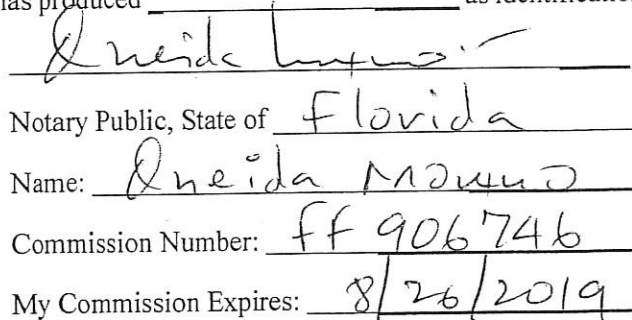 has produced ____ as identification
Oneida
Notary Public, State of Florida
Name: Oneida Moreno
Commission Number: ff 906746
My Commission Expires: 8/26/2019